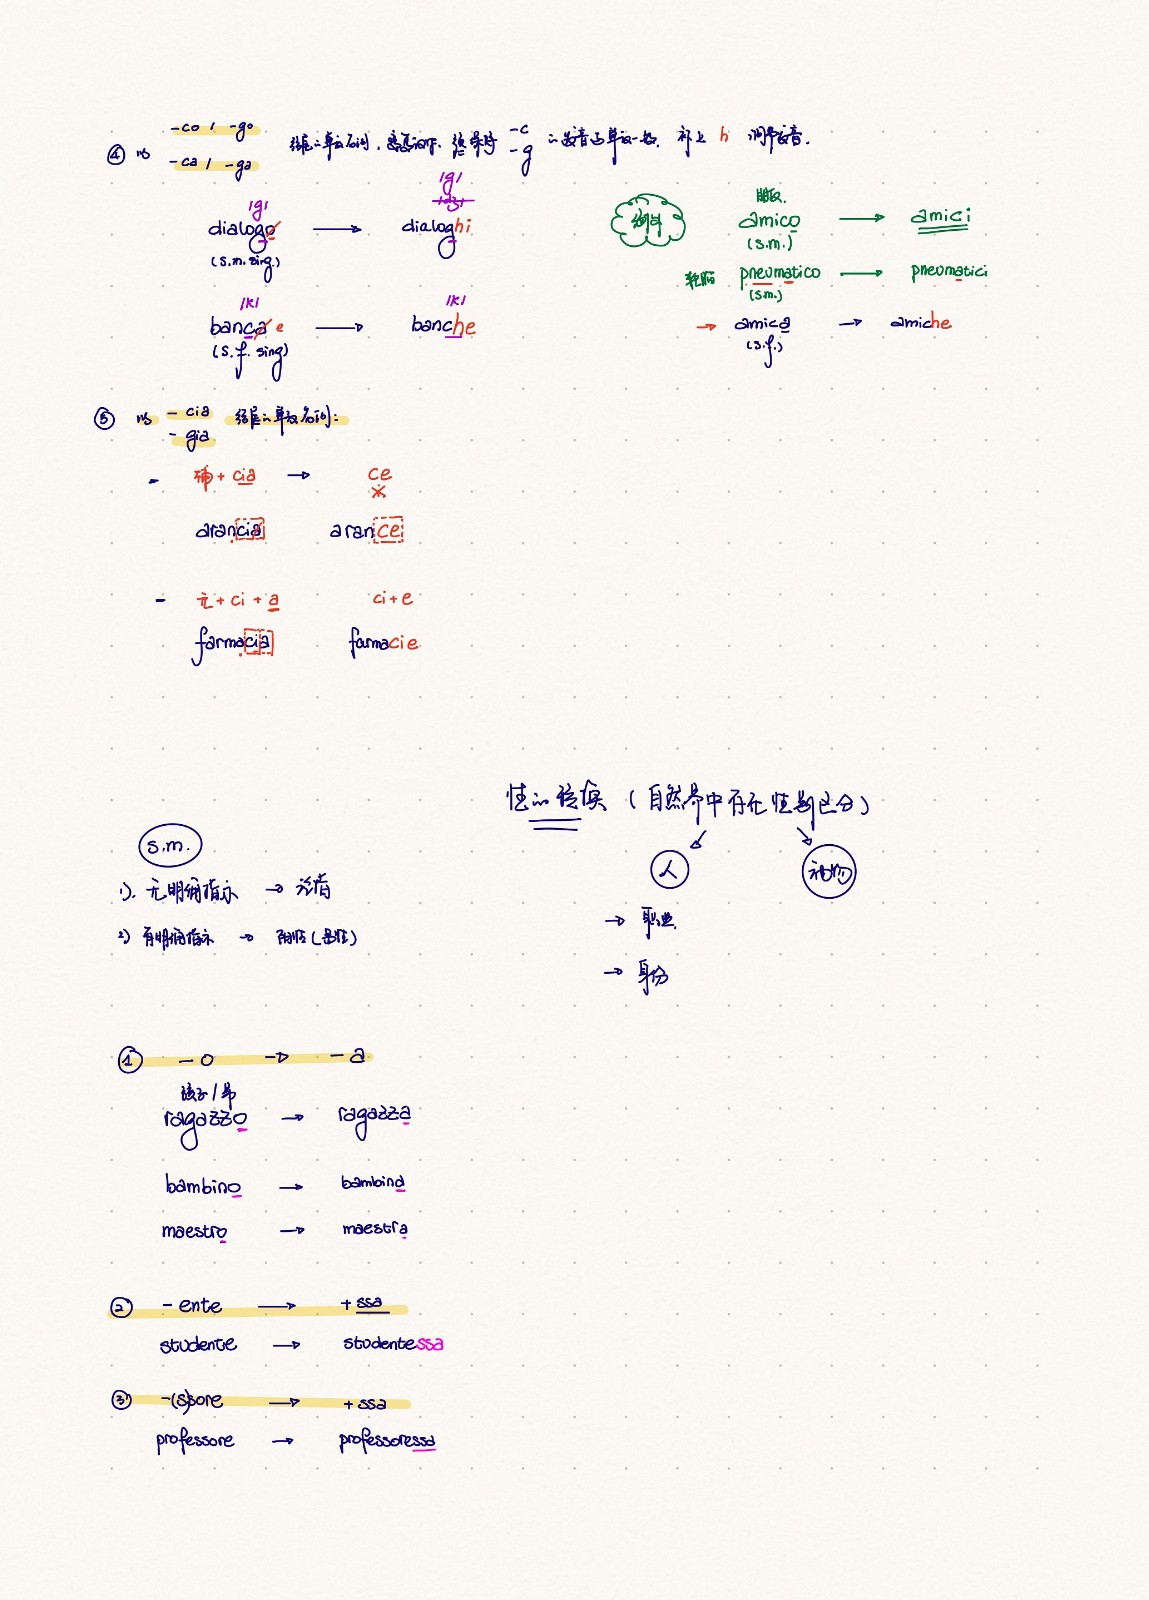 -co / -go
④ 以 -ca / -ga 结尾的单数名词, 复数词尾 -c -g 的发音与单数一致, 补上 h 调节发音.
|g| |g|
dialogo → dialoghi
(s.m.sing.)
|k| |k|
banca e → banche
(s.f. sing)
例外
朋友.
amico → amici
(s.m.)
轮胎 pneumatico → pneumatici
(s.m.)
→ amica → amiche
(s.f.)
⑤ 以 - cia - gia 结尾的单数名词:
- 辅 + cia → ce
arancia arance
- 元 + ci + a ci + e
farmacia farmacie
性的转换 (自然界中存在性别区分)
人 动物
→ 职业.
→ 身份
s.m.
1). 无明确指示 →
2) 有明确指示 → 阳性 (男性)
① - o → - a
孩子 /
ragazzo → ragazza
bambino → bambina
maestro → maestra
② - ente → + ssa
studente → studentessa
③ -(s)sore → + ssa
professore → professoressa